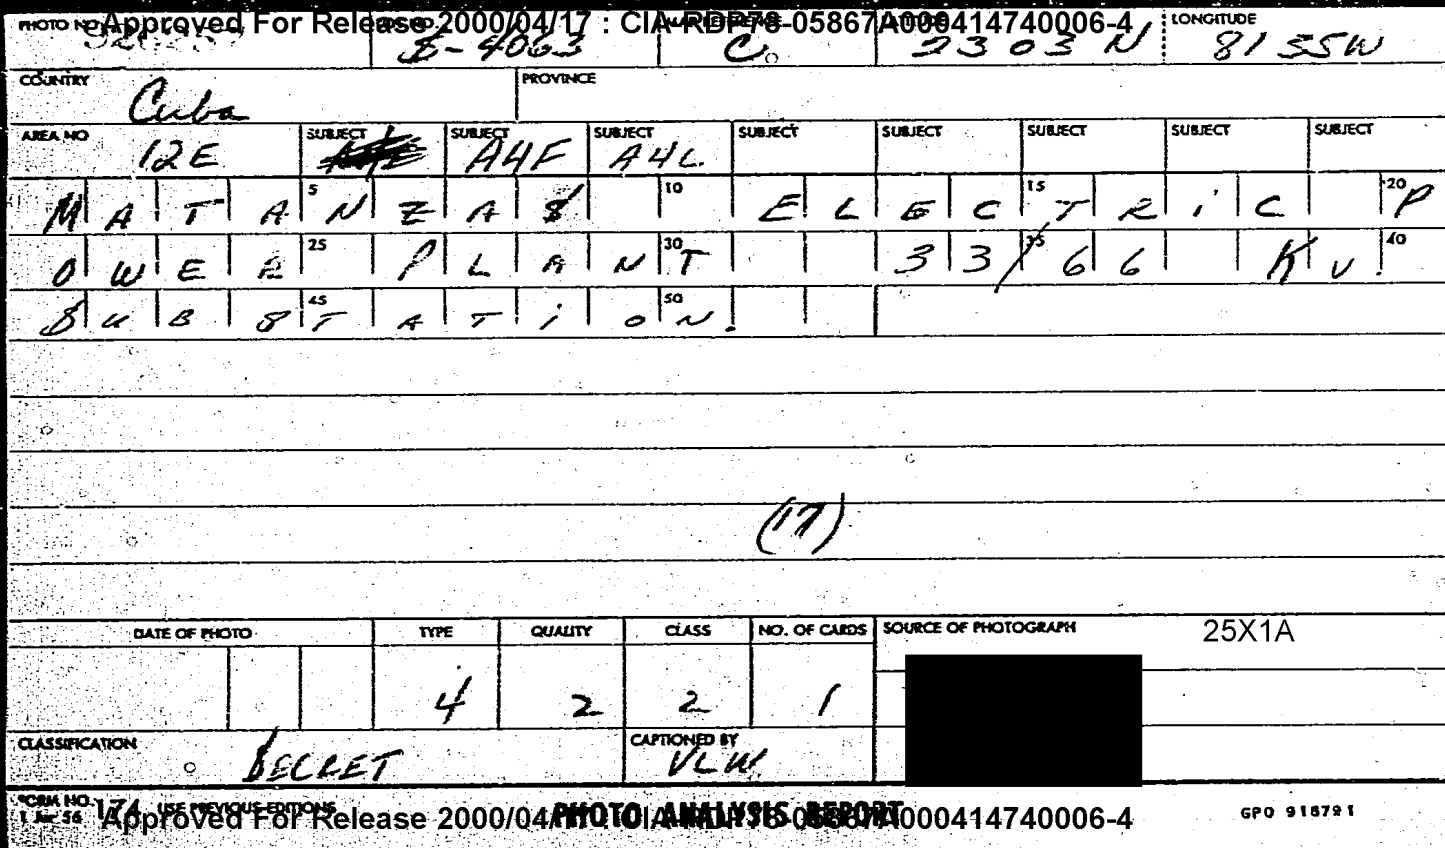 Approved For Release 2000/04/17 : CIA-RDP78-05867A000414740006-4
PHOTO NO. LONGITUDE
S-4063 C. 2303 N 81 35W
COUNTRY PROVINCE
Cuba
AREA NO SUBJECT SUBJECT SUBJECT SUBJECT SUBJECT SUBJECT SUBJECT SUBJECT
12E A4F A4L
5 10 15 20
MATANZAS ELECTRiC P
25 30 35 40
OWER PLANT 33/66 KV.
45 50
SUBSTATiON.
(17)
DATE OF PHOTO TYPE QUALITY CLASS NO. OF CARDS SOURCE OF PHOTOGRAPH 25X1A
4 2 2 1
CLASSIFICATION CAPTIONED BY
SECRET VLW
FORM NO. 174 USE PREVIOUS EDITIONS PHOTO ANALYSIS REPORT GPO 916791
1 Jun 56
Approved For Release 2000/04/17 : CIA-RDP78-05867A000414740006-4